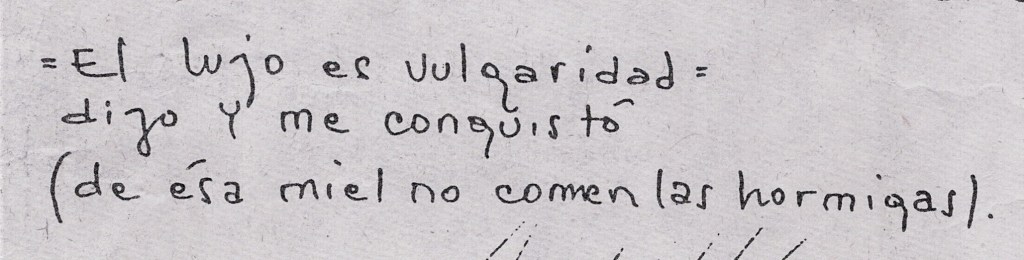 =El lujo es vulgaridad=
digo y me conquistó
(de ésa miel no comen las hormigas).